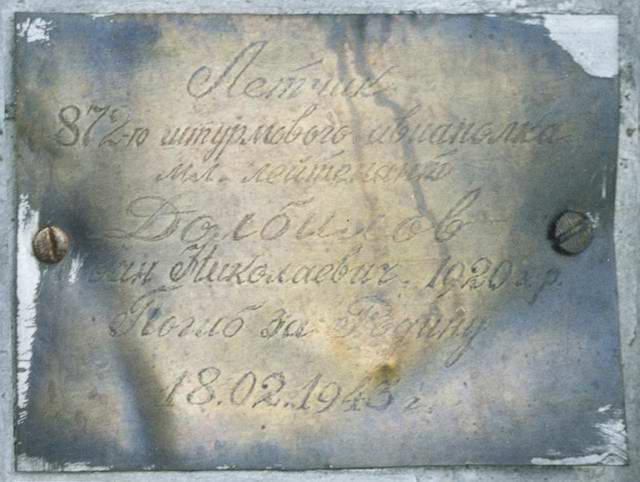 Летчик
872-го штурмового авиаполка
мл. лейтенант
Долбилов
Николаевич, 1920 г.р.
Погиб за Родину
18.02.1943 г.